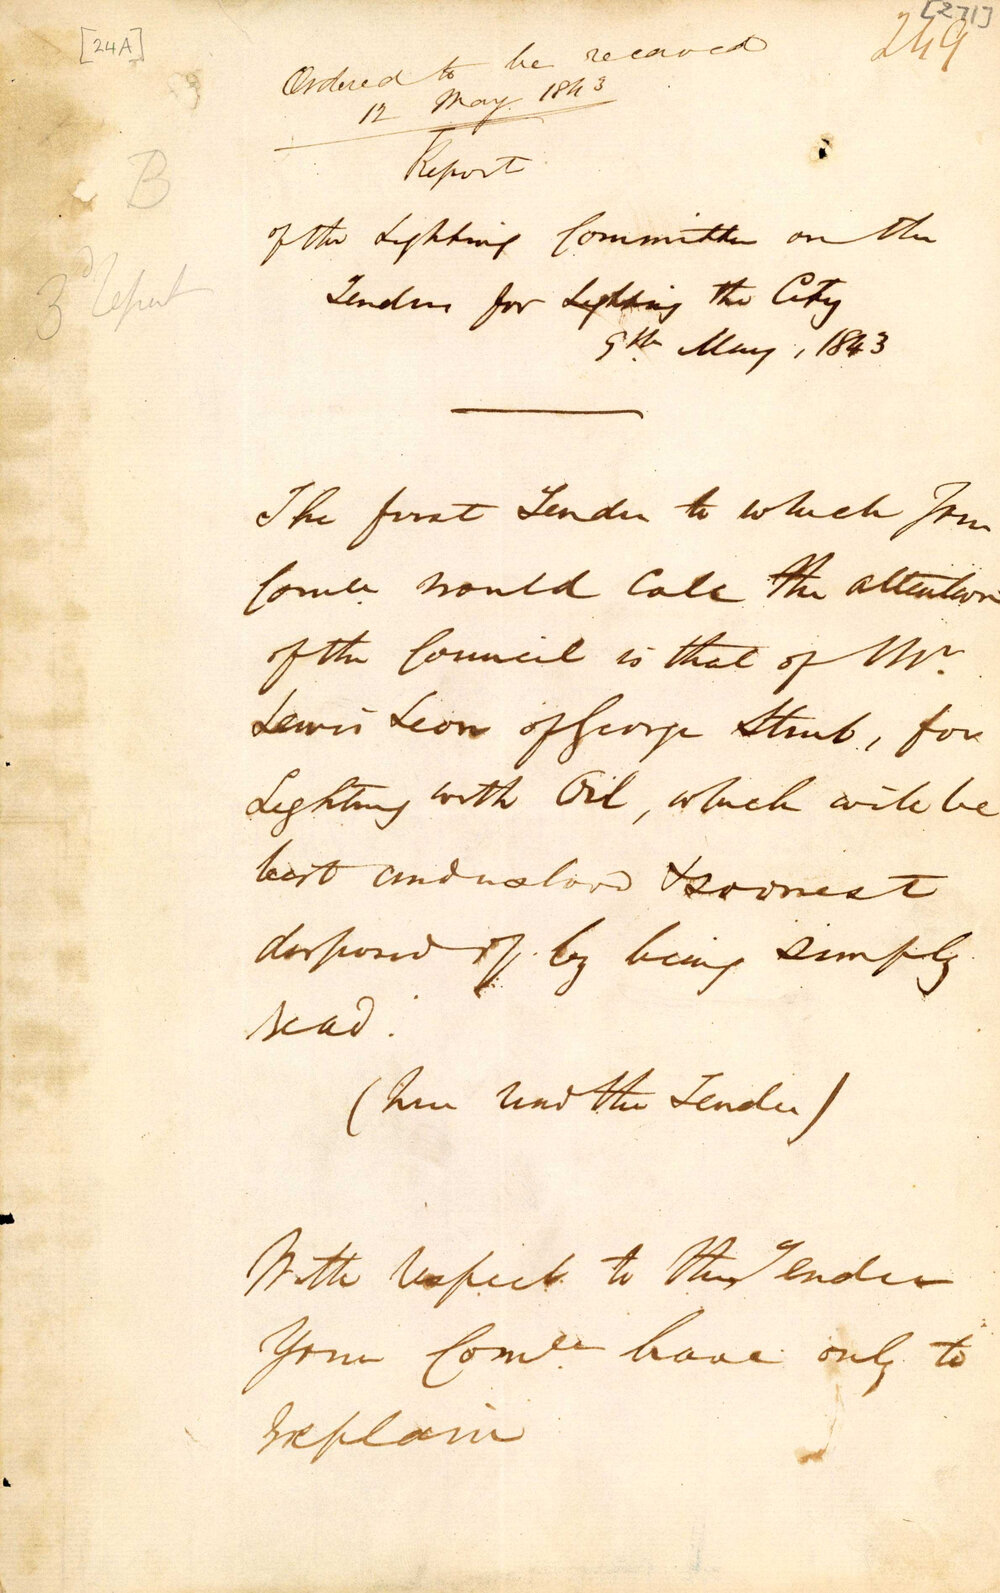 [24A]
[271]
249
Ordered to be received
12 May 1843
B
3d Report
Report
of the Lighting Committee on the
Tenders for Lighting the City
9th May, 1843
The first Tender to which Your
Comee would Call the attention
of the Council is that of Mr.
Lewis Leon of George Street, for
Lighting with Oil, which will be
best understood & soonest
disposed of by being simply
read.
(here read the Tender)
With respect to this Tender
Your Comee have only to
explain